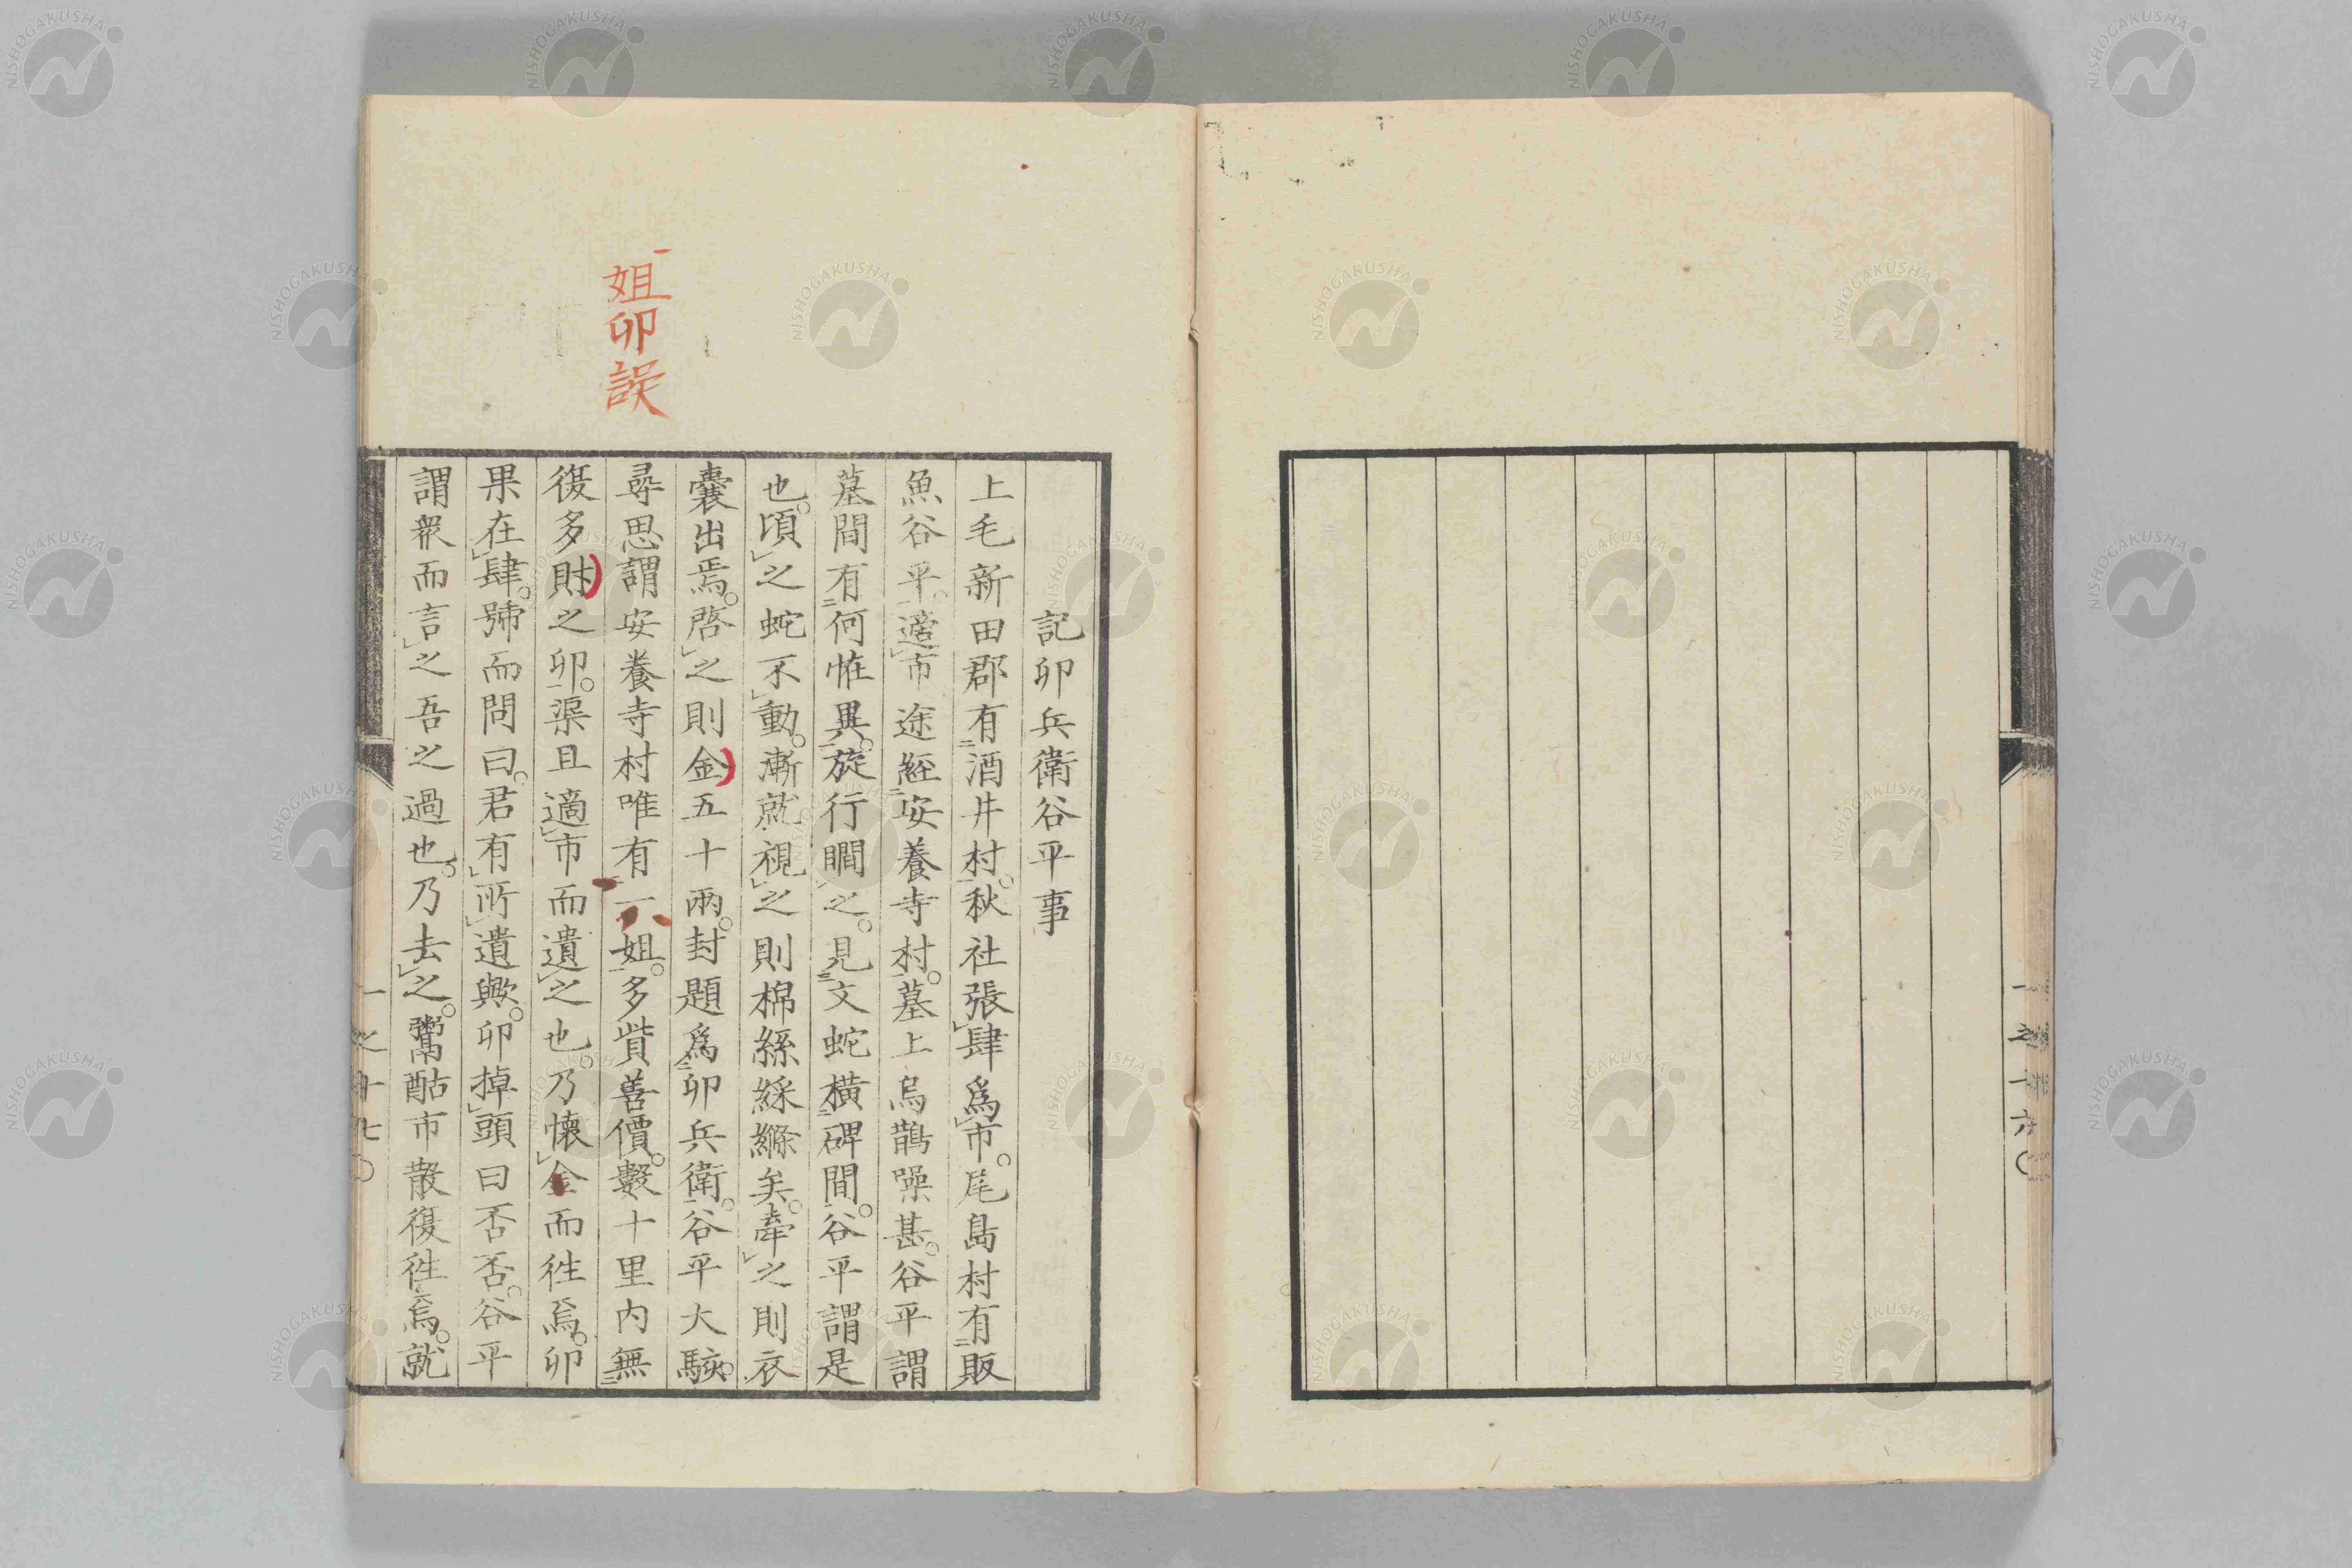 記卯兵衛谷平事
上毛新田郡有酒井村。秋社張肆爲市。尾島村有販
魚谷平。適市途經安養寺村。墓上烏鵲噪甚。谷平謂
墓間有何恠異。旋行瞯之。見文蛇橫碑間。谷平謂是
也。頃之蛇不動。漸就視之則棉絲綵縧矣。牽之則衣
囊出焉。啓之則金五十兩。封題爲卯兵衛。谷平大駭。
尋思謂安養寺村唯有一姐。多貲善價。數十里內無
復多財之卯。渠且適市而遺之也。乃懷金而徃焉。卯
果在肆。號而問曰。君有所遺歟。卯掉頭曰否否。谷平
謂衆而言之吾之過也。乃去之。鬻酤市散復徃焉。就
姐卯誤
一之十七
一之十六
NISHOGAKUSHA